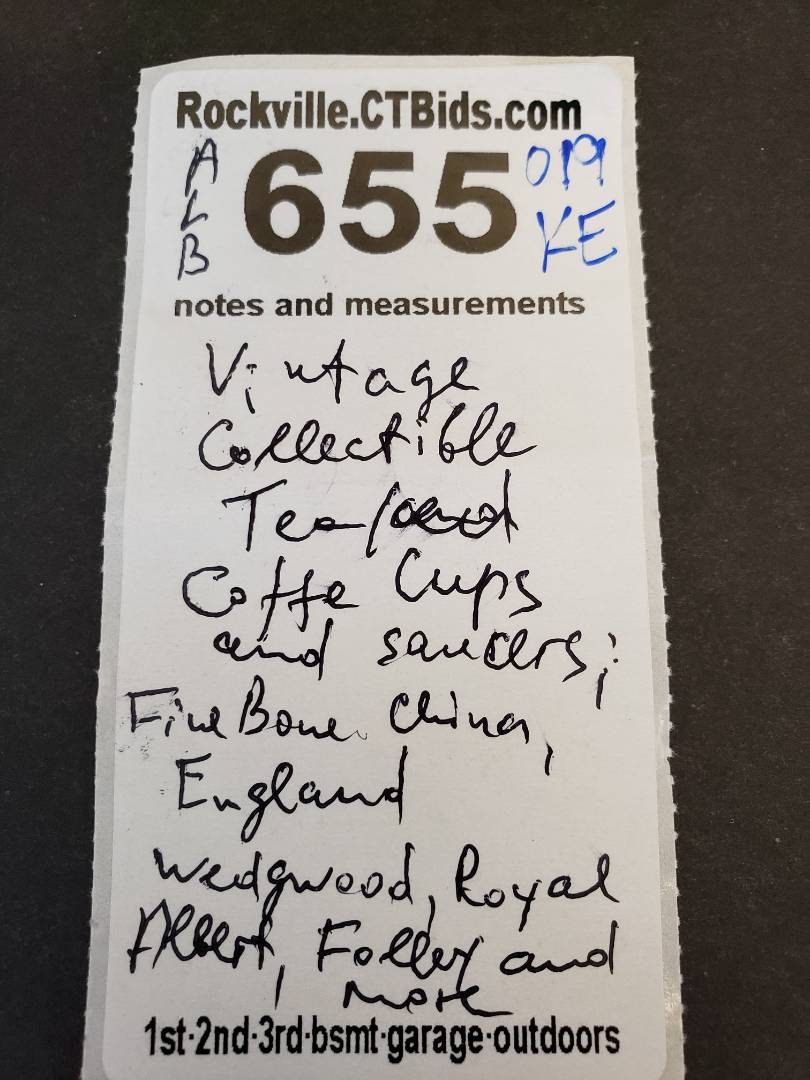 Rockville.CTBids.com
ALB 655 019
KE
notes and measurements
Vintage
Collectible
Tea/and
Coffe Cups
and saucers;
Fine Bone China,
England
Wedgwood, Royal
Albert, Folley and
more
1st·2nd·3rd·bsmt·garage·outdoors